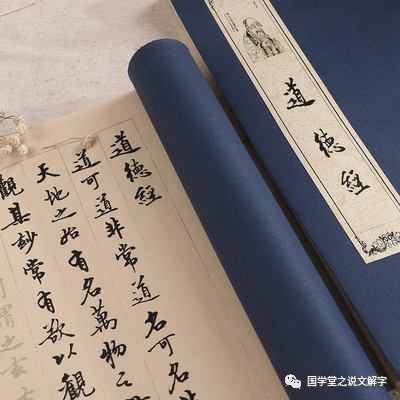 道德經
道可道非常道名可名
天地之始有名萬物之
觀其妙常有欲以觀
謂之玄
道德經
国学堂之说文解字